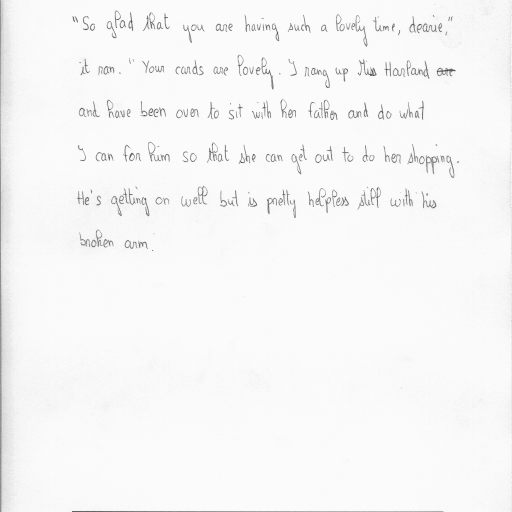 "So glad that you are having such a lovely time, dearie,"
it ran. "Your cards are lovely. I rang up Miss Harland are
and have been over to sit with her father and do what
I can for him so that she can get out to do her shopping.
He's getting on well but is pretty helpless still with his
broken arm.